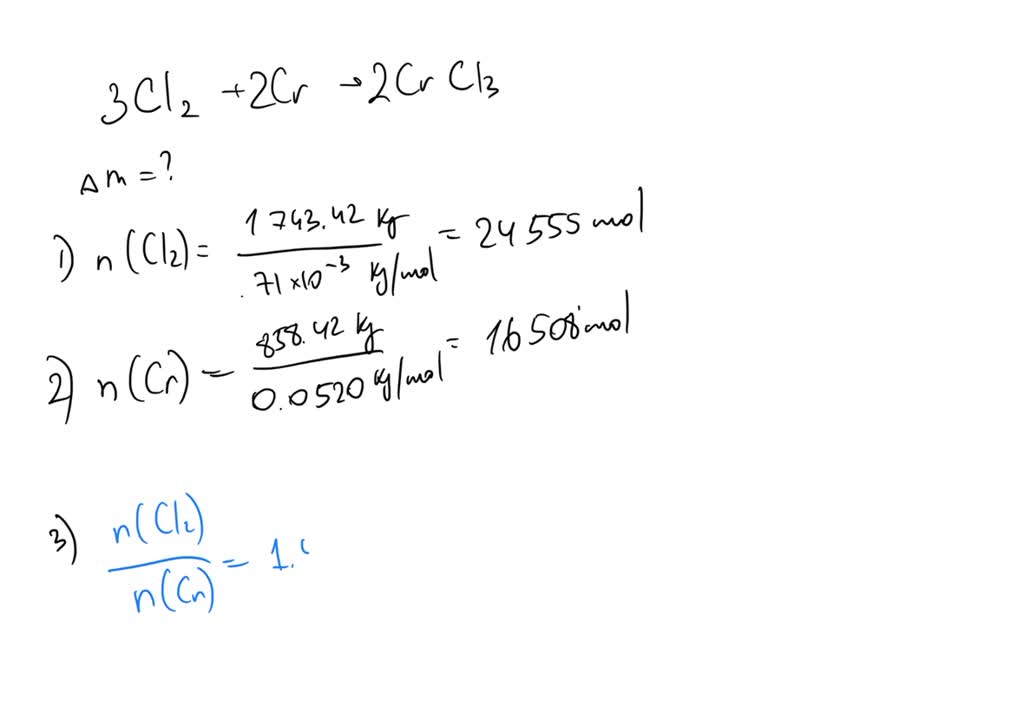 3Cl₂ + 2Cr → 2CrCl₃
Δm = ?
1) n(Cl₂) = 1743.42 kg / 71×10⁻³ kg/mol = 24555 mol
2) n(Cr) = 858.42 kg / 0.0520 kg/mol = 16508 mol
3) n(Cl₂) / n(Cr) = 1.